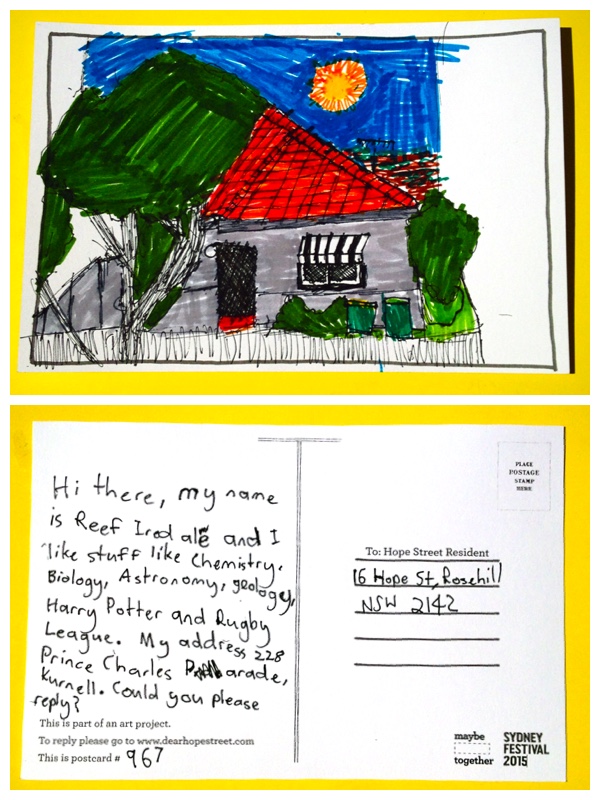 Hi there, my name
is Reef Iredale and I
like stuff like Chemistry,
Biology, Astronomy, geology,
Harry Potter and Rugby
League. My address 228
Prince Charles Parade,
Kurnell. Could you please
reply?
This is part of an art project.
To reply please go to www.dearhopestreet.com
This is postcard # 967
PLACE
POSTAGE
STAMP
HERE
To: Hope Street Resident
16 Hope St, Rosehill
NSW 2142
maybe
together
SYDNEY
FESTIVAL
2015